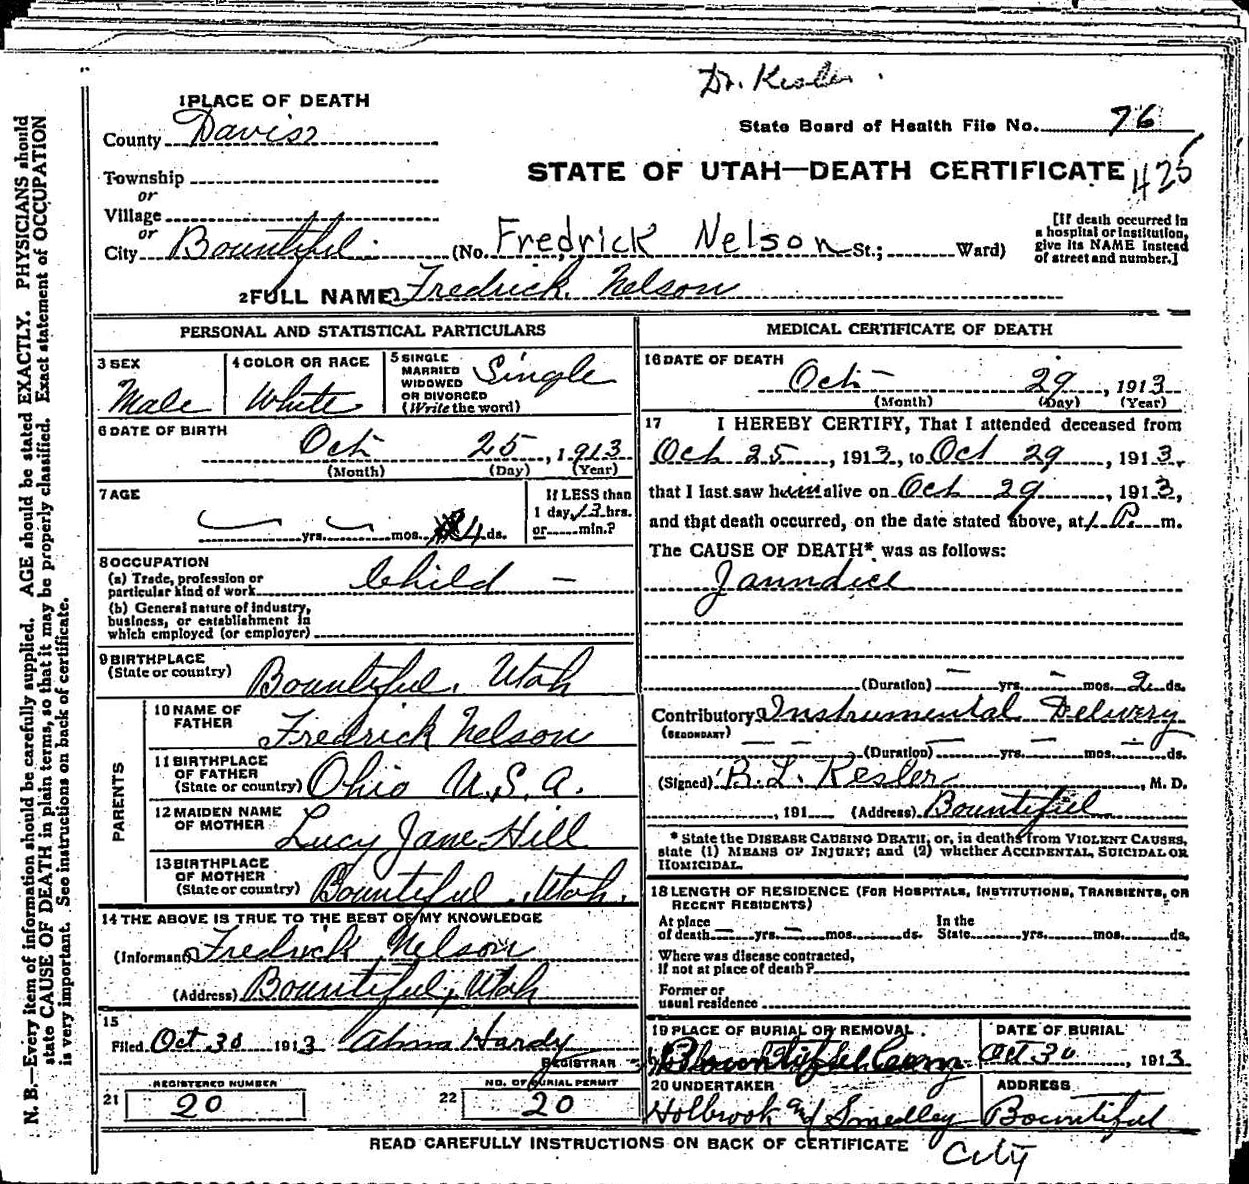 Dr. Kesler.
1 PLACE OF DEATH
County Davis
State Board of Health File No. 76
Township
or
STATE OF UTAH—DEATH CERTIFICATE 425
Village
or
City Bountiful. (No. Fredrick Nelson St.; Ward)
[If death occurred in
a hospital or institution,
give its NAME instead
of street and number.]
2 FULL NAME Fredrick Nelson
PERSONAL AND STATISTICAL PARTICULARS
3 SEX
Male
4 COLOR OR RACE
White
5 SINGLE
MARRIED
WIDOWED
OR DIVORCED
(Write the word)
Single
6 DATE OF BIRTH
Oct 25, 1913
(Month) (Day) (Year)
7 AGE
yrs. mos. 4 ds.
If LESS than
1 day, 13 hrs.
or min.?
8 OCCUPATION
(a) Trade, profession or
particular kind of work Child —
(b) General nature of industry,
business, or establishment in
which employed (or employer)
9 BIRTHPLACE
(State or country) Bountiful, Utah
PARENTS
10 NAME OF
FATHER Fredrick Nelson
11 BIRTHPLACE
OF FATHER
(State or country) Ohio U.S.A.
12 MAIDEN NAME
OF MOTHER Lucy Jane Hill
13 BIRTHPLACE
OF MOTHER
(State or country) Bountiful, Utah.
14 THE ABOVE IS TRUE TO THE BEST OF MY KNOWLEDGE
(Informant) Fredrick Nelson
(Address) Bountiful, Utah
15
Filed Oct 30 1913 Alma Hardy
REGISTRAR
REGISTERED NUMBER
21 20
NO. OF BURIAL PERMIT
22 20
MEDICAL CERTIFICATE OF DEATH
16 DATE OF DEATH
Oct 29, 1913
(Month) (Day) (Year)
17 I HEREBY CERTIFY, That I attended deceased from
Oct 25, 1913, to Oct 29, 1913,
that I last saw him alive on Oct 29, 1913,
and that death occurred, on the date stated above, at 1 P. m.
The CAUSE OF DEATH* was as follows:
Jaundice
(Duration) — yrs. — mos. 2 ds.
Contributory Instrumental Delivery
(SECONDARY)
(Duration) — yrs. — mos. — ds.
(Signed) B. L. Kesler, M. D.
, 191 (Address) Bountiful
* State the DISEASE CAUSING DEATH, or, in deaths from VIOLENT CAUSES,
state (1) MEANS OF INJURY; and (2) whether ACCIDENTAL, SUICIDAL OR
HOMICIDAL.
18 LENGTH OF RESIDENCE (FOR HOSPITALS, INSTITUTIONS, TRANSIENTS, OR
RECENT RESIDENTS)
At place
of death — yrs. — mos. ds.
In the
State yrs. mos. ds.
Where was disease contracted,
if not at place of death?
Former or
usual residence
19 PLACE OF BURIAL OR REMOVAL
Bountiful Cem
DATE OF BURIAL
Oct 30, 1913
20 UNDERTAKER
Holbrook and Smedley
ADDRESS
Bountiful
City
READ CAREFULLY INSTRUCTIONS ON BACK OF CERTIFICATE
N. B.—Every item of information should be carefully supplied. AGE should be stated EXACTLY. PHYSICIANS should
state CAUSE OF DEATH in plain terms, so that it may be properly classified. Exact statement of OCCUPATION
is very important. See instructions on back of certificate.